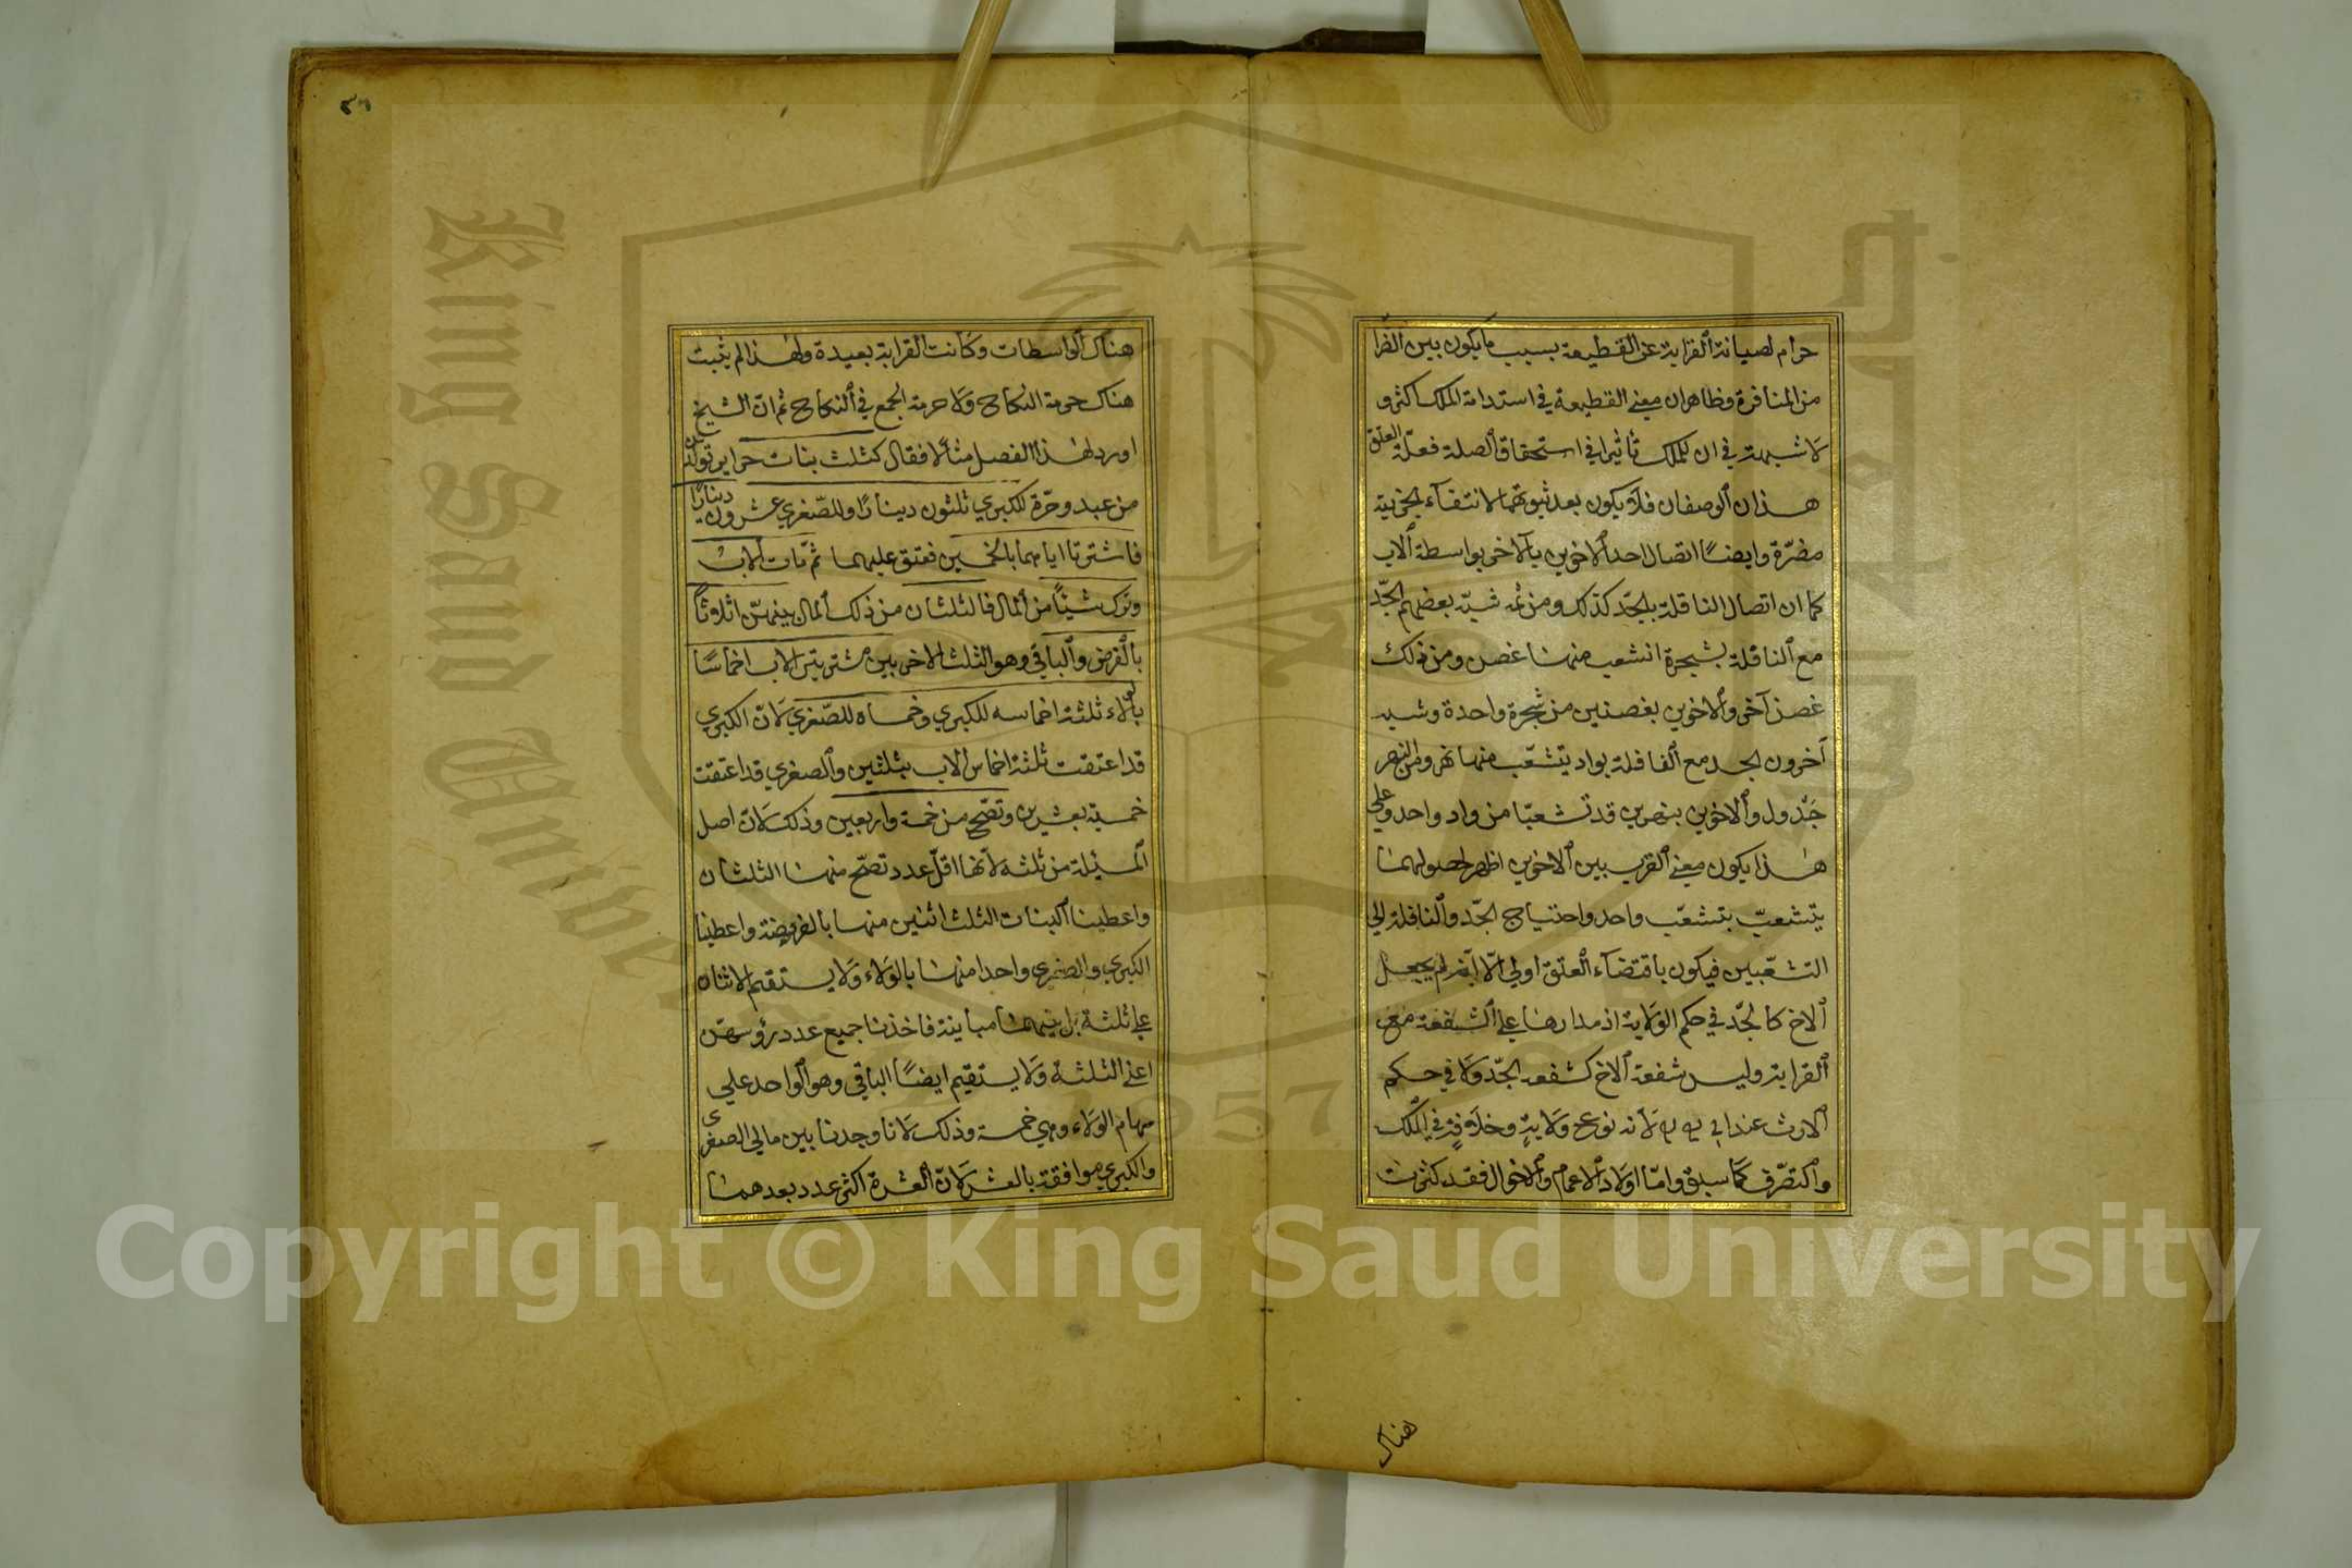 حرام لصيانة القرابة عن القطيعة بسبب ما يكون بين الضرا
من المنافرة وظاهر ان معنى القطيعة في استدامة الملك اكثر و
لا شبهة في ان للملك تأثيرا في استحقاق الصلة فعلّة العتق
هذان الوصفان فلا يكون بعد ثبوتهما لانتفاء الجزئية
مضرّة وايضًا اتصال احد الاخوين بالآخر بواسطة الاب
كما ان اتصال النافلة بالجد كذلك ومن ثمه شبّه بعضهم الجدّ
مع النافلة بشجرة انشعب منها غصن ومن ذلك
غصن آخر والاخوين بغصنين من شجرة واحدة وشبه
آخرون الجد مع النافلة بواد يتشعّب منها نهر ومن النهر
جَدْول والاخوين بنهرين قد تشعبّا من واد واحد وعلى
هذا يكون معنى القرب بين الاخوين اظهر لحصولهما
بتشعبّ بتشعّب واحد واحتياج الجدّ والنافلة الي
التشعّبين فيكون باقتضاء العتق اولى الّا انّه لم يجعل
الاخ كالجدّ في حكم الولاية اذ مدارها على الشفقة مع
القرابة وليس شفقة الاخ كشفعه الجدّ ولا في حكم
الارث عند لانه نوع ولايةٍ وخلافةٍ في الملك
والتصّرف كما سبق وامّا اولاد الاعمام والاخوال فقد كثرت
هناك
٤٦
هناك الواسطات وكانت القرابة بعيدة ولهذا لم يثبت
هناك حرمة النكاح ولا حرمة الجمع في النكاح ثم انّ الشيخ
اورد لهذا الفصل مثالًا فقال كثلث بنات حراير تولّدن
من عبد وحرّة للكبري ثلثون دينارًا وللصّغري عشرون دينارًا
فاشترتا اباهما بالخمسين فعتق عليهما ثمّ مات الاب
وترك شيئًا من المال فالثلثان من ذلك المال بينهنّ اثلاثًا
بالفرض والباقي وهو الثلث الاخر بين مشتريتي الاب اخماسًا
بالولاء ثلثة اخماسه للكبري وخمساه للصّغري لانّ الكبري
قد اعتقت ثلثة اخماس الاب بثلثين والصغري قد اعتقت
خمسيه بعشرين وتصّح من خمسة واربعين وذلك لانّ اصل
المسئلة من ثلثه لانّها اقلّ عدد تصّح منها الثلثان
واعطينا البنات الثلث اثنين منها بالفريضة واعطينا
الكبري والصغري واحدا منها بالولاء ولا يستقيم الاثنان
علي ثلثة بل بينهما مباينة فاخذنا جميع عدد رؤسهن
اعني الثلثة ولا يستقيم ايضًا الباقي وهو الواحد علي
سهام الولاء وهي خمسة وذلك لانا وجدنا بين مالي الصغرى
والكبري موافقة بالعشر لانّ العشرة اكثر عدد يعدهما
King Saud University
1957
Copyright © King Saud University